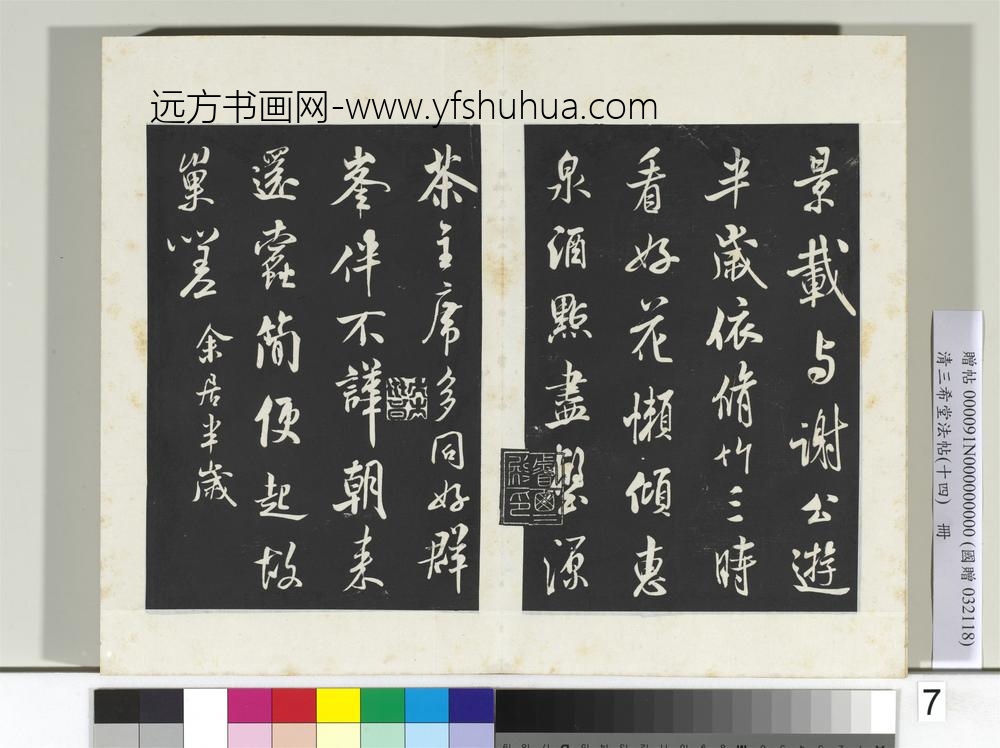 远方书画网-www.yfshuhua.com
景載与謝公遊
半歲依脩竹三時
看好花懶傾惠
泉酒點盡壑源
茶主席多同好群
峯伴不譁朝来
還蠹簡便起故
巢嗟 余居半歲
贈帖 000091N000000000 (國贈 032118)
清三希堂法帖(十四) 冊
7